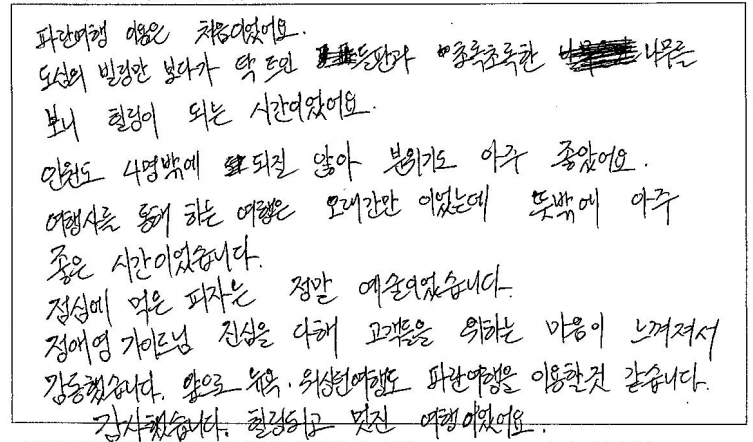 파란여행 이용은 처음이었어요.
도심의 빌딩만 보다가 딱 트인 들판과 초록초록한 나무를
보니 힐링이 되는 시간이었어요.
인원도 4명밖에 되질 않아 분위기도 아주 좋았어요.
여행사를 통해 하는 여행은 오래간만 이었는데 뜻밖에 아주
좋은 시간이었습니다.
점심에 먹은 피자는 정말 예술이었습니다.
정애영 가이드님 진심을 다해 고객들을 위하는 마음이 느껴져서
감동했습니다. 앞으로 뉴욕·워싱턴여행도 파란여행을 이용할것 같습니다.
감사했습니다. 힐링되고 멋진 여행이었어요.